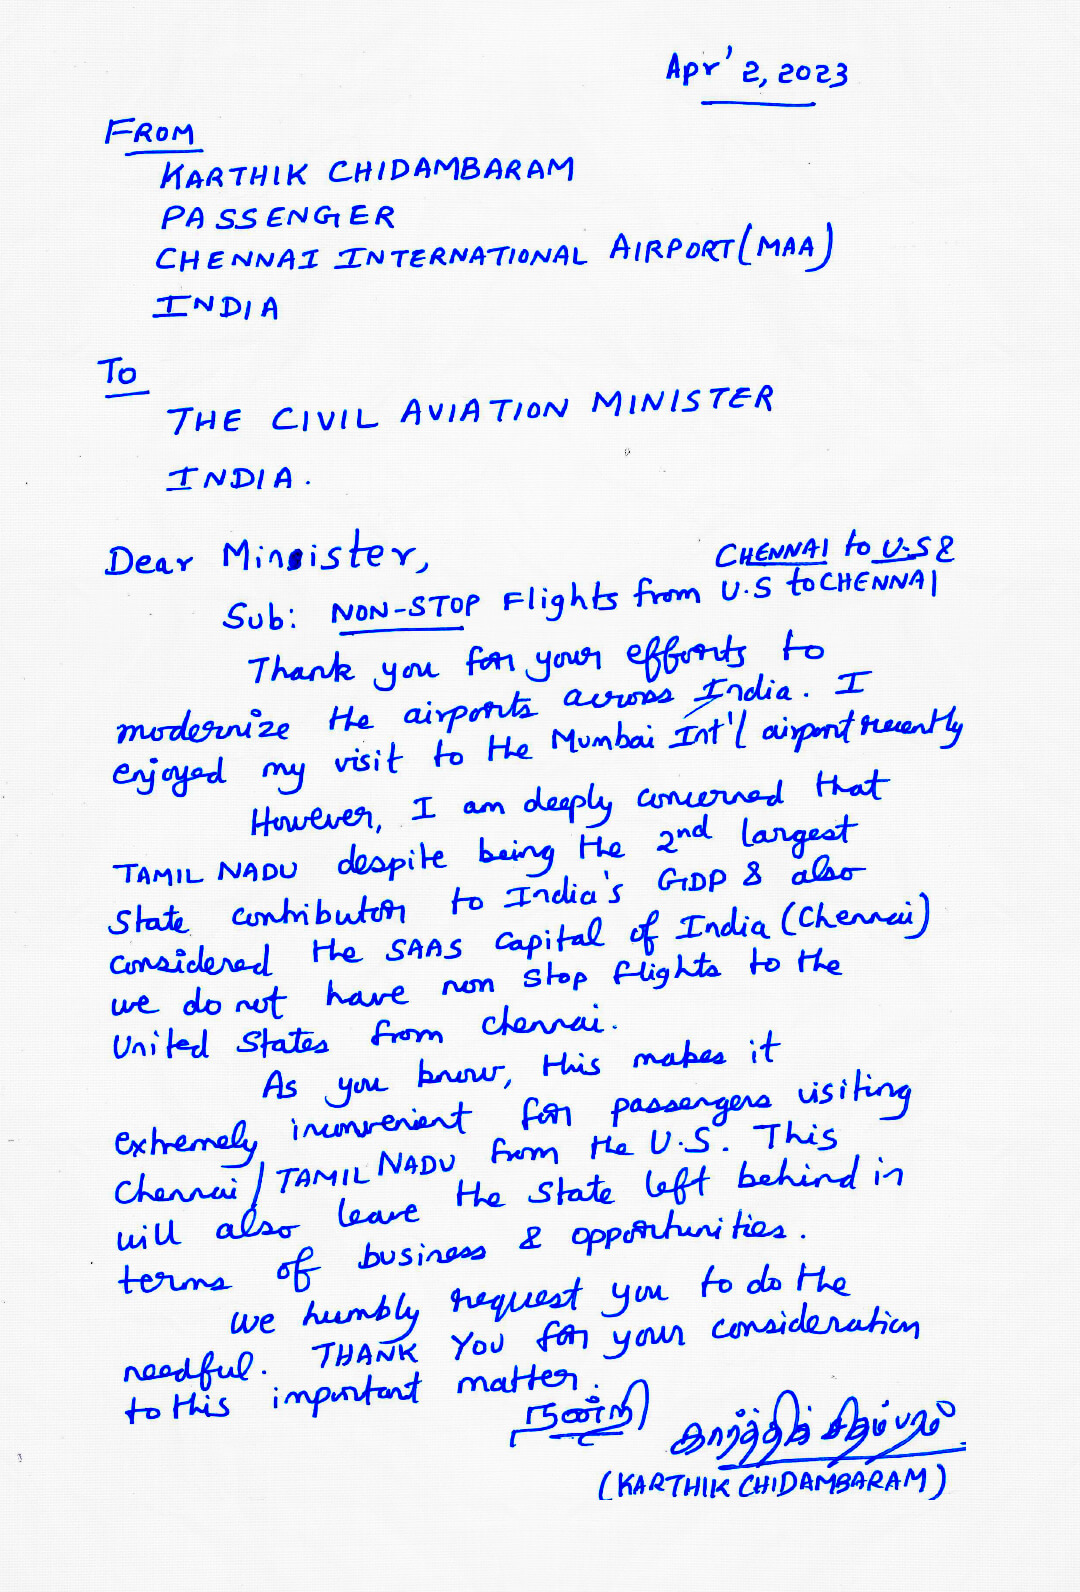 Apr' 2, 2023
FROM
KARTHIK CHIDAMBARAM
PASSENGER
CHENNAI INTERNATIONAL AIRPORT (MAA)
INDIA
To
THE CIVIL AVIATION MINISTER
INDIA.
Dear Minister,
CHENNAI to U.S &
Sub: NON-STOP Flights from U.S to CHENNAI
Thank you for your efforts to
modernize the airports across India. I
enjoyed my visit to the Mumbai Int'l airport recently
However, I am deeply concerned that
TAMIL NADU despite being the 2nd largest
State contributor to India's GDP & also
considered the SAAS Capital of India (Chennai)
we do not have non stop flights to the
United States from chennai.
As you know, this makes it
extremely inconvenient for passengers visiting
Chennai / TAMIL NADU from the U.S. This
will also leave the State left behind in
terms of business & opportunities.
We humbly request you to do the
needful. THANK YOU for your consideration
to this important matter.
நன்றி
கார்த்திக் சிதம்பரம்
(KARTHIK CHIDAMBARAM)